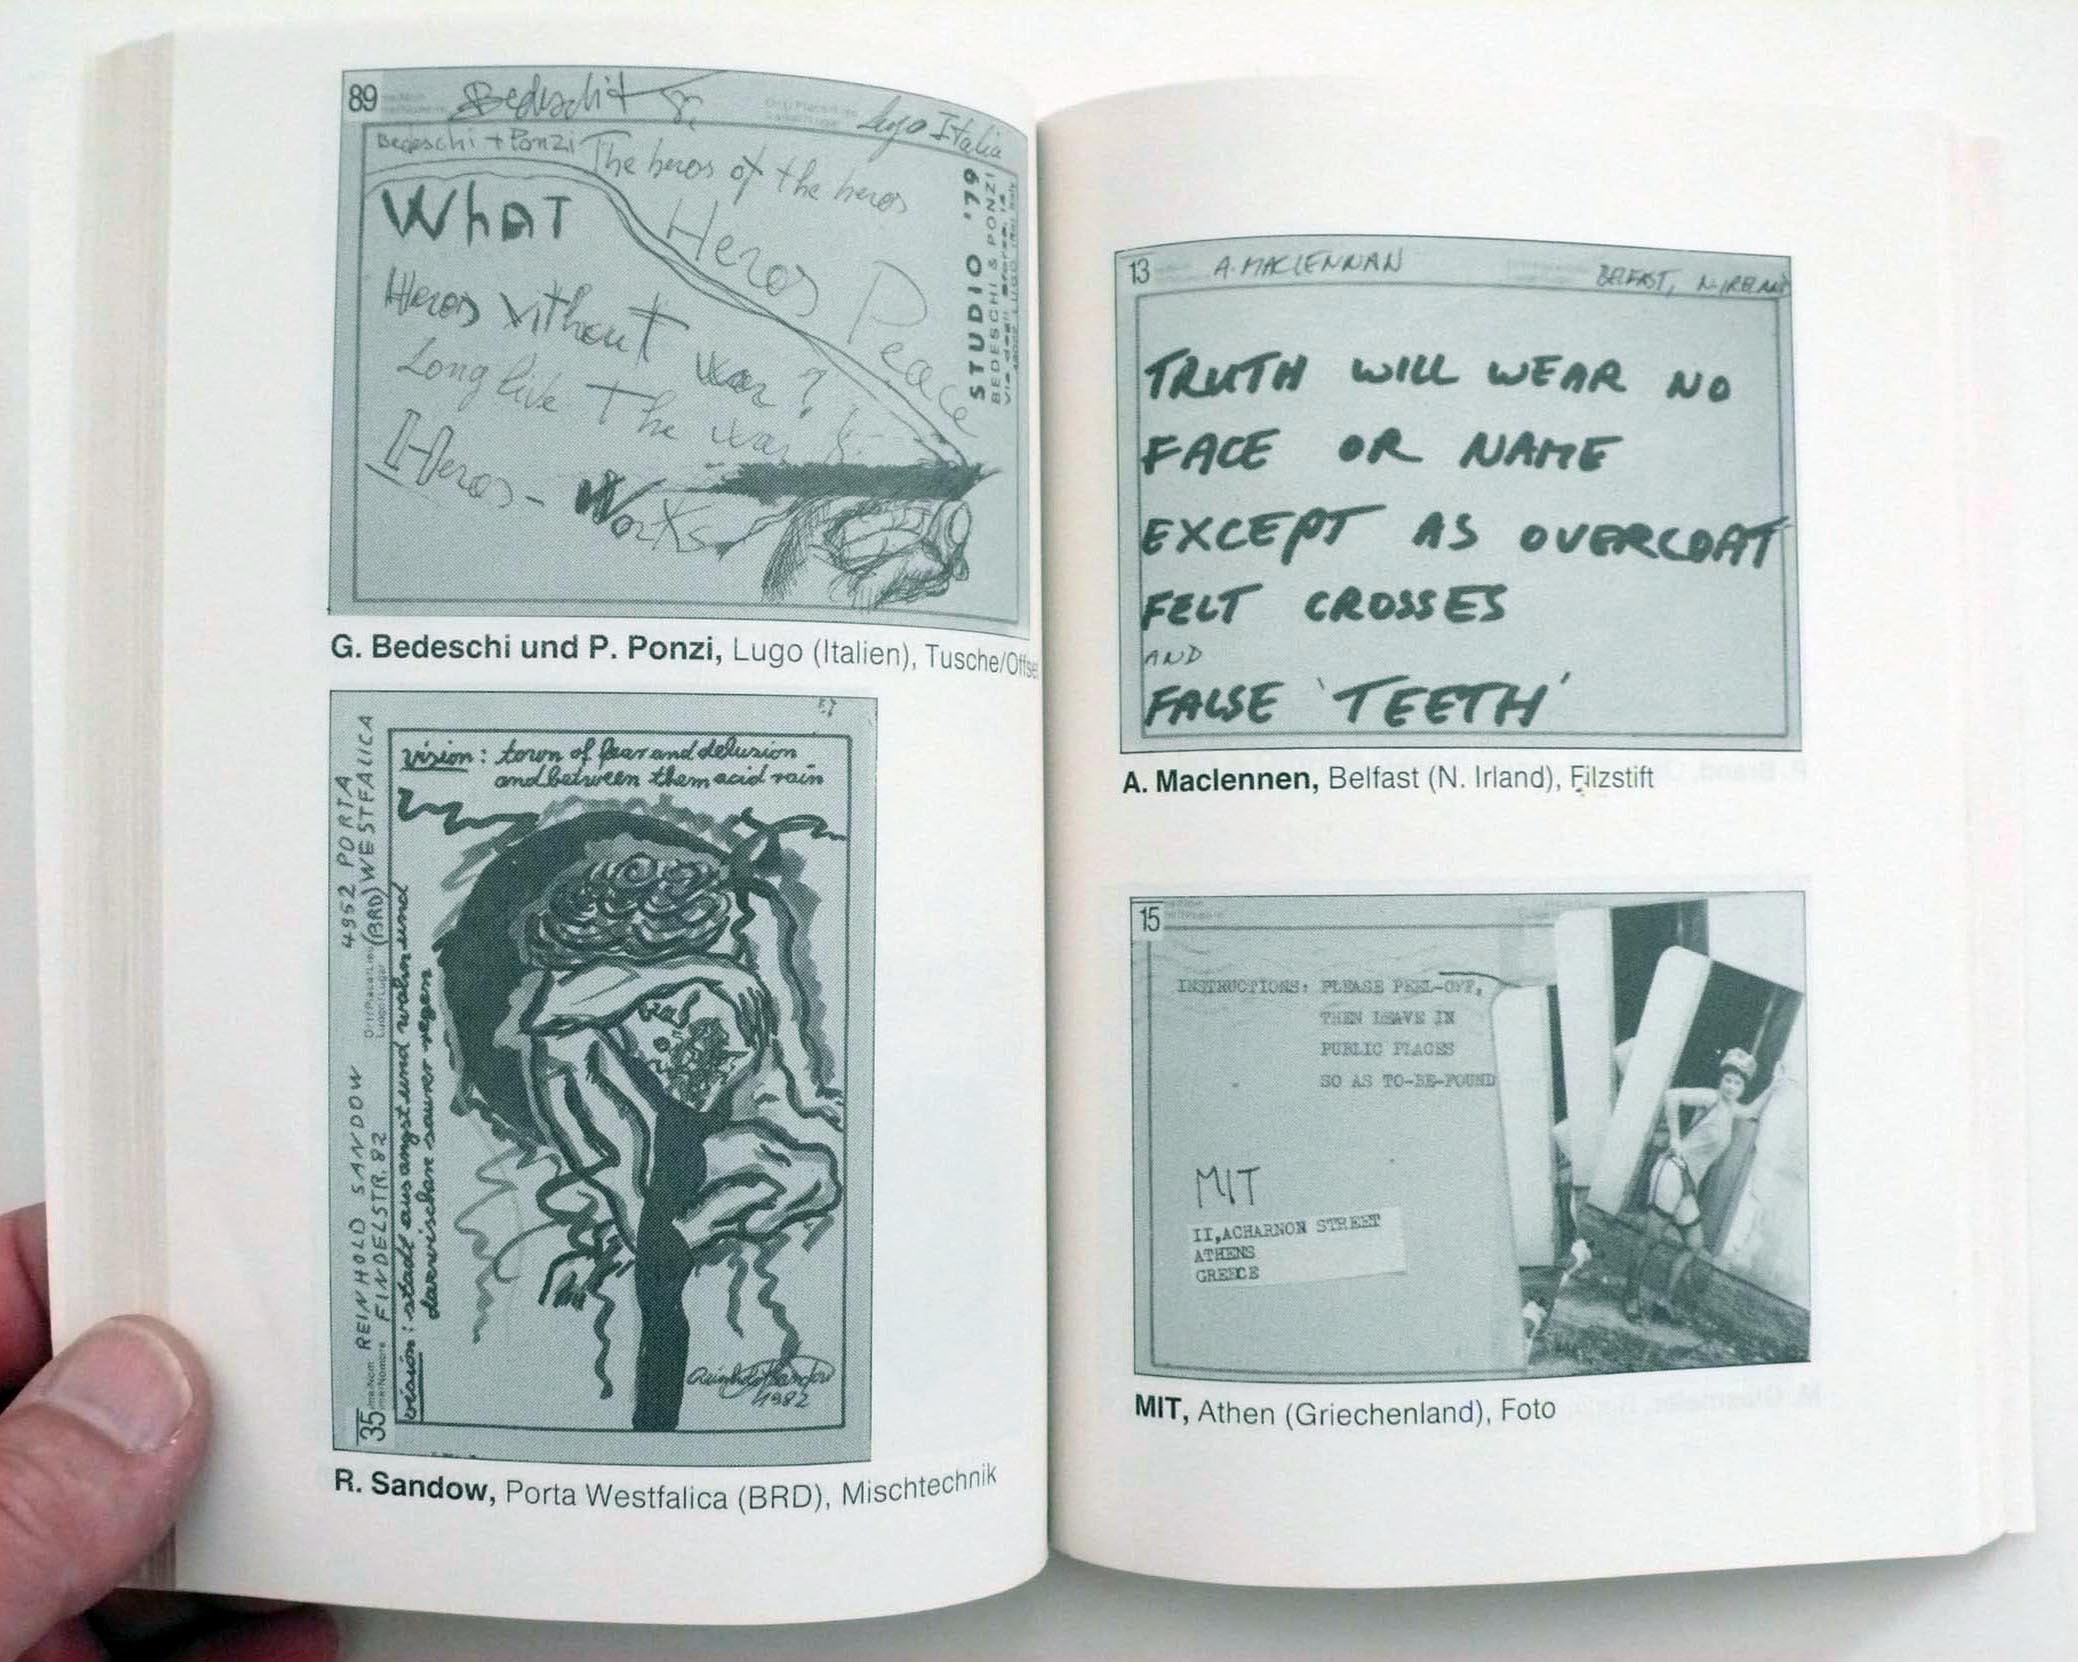 89
Bedeschi
Lugo Italia
Bedeschi + Ponzi The heros of the heros
WhAT
Heros Peace
Heros without war?
Long live the war
Heros - Works
STUDIO '79
BEDESCHI & PONZI
G. Bedeschi und P. Ponzi, Lugo (Italien), Tusche/Offset
vision: town of fear and delusion
and between them acid rain
4952 PORTA
(BRD) WESTFALICA
REINHOLD SANDOW
FINDELSTR. 82
vision: stadt aus angst und wahn und
dazwischen saurer regen
35
Reinhold Sandow
1982
R. Sandow, Porta Westfalica (BRD), Mischtechnik
13
A. MACLENNAN
BELFAST, N. IRELAND
TRUTH WILL WEAR NO
FACE OR NAME
EXCEPT AS OVERCOAT
FELT CROSSES
AND
FALSE 'TEETH'
A. Maclennen, Belfast (N. Irland), Filzstift
15
INSTRUCTIONS: PLEASE PEEL-OFF,
THEN LEAVE IN
PUBLIC PLACES
SO AS TO-BE-FOUND
MIT
II,ACHARNON STREET
ATHENS
GREECE
MIT, Athen (Griechenland), Foto